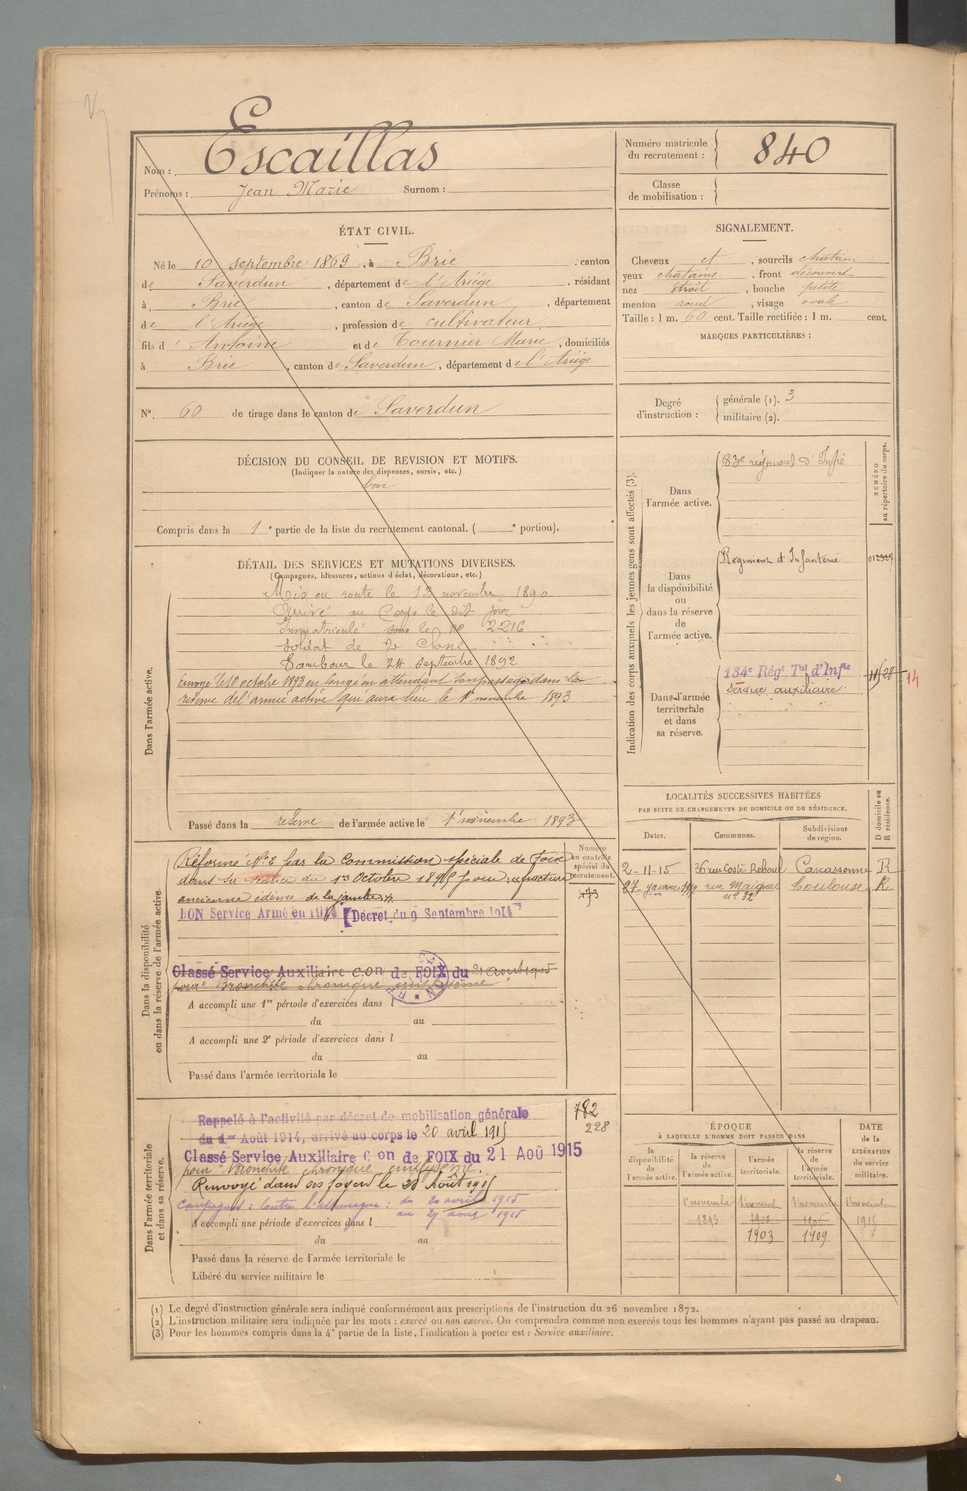 Nom : Escaillas
Prénoms : Jean Marie Surnom :
Numéro matricule du recrutement : 840
Classe de mobilisation :
ÉTAT CIVIL.
Né le 10 septembre 1869, à Brie, canton
de Saverdun, département de l'Ariège, résidant
à Brie, canton de Saverdun, département
de l'Ariège, profession de cultivateur
fils d' Antoine et de Tournier Marie, domiciliés
à Brie, canton de Saverdun, département de l'Ariège
N° 60 de tirage dans le canton de Saverdun
SIGNALEMENT.
Cheveux et, sourcils chatains
yeux chatains, front découvert
nez étroit, bouche petite
menton rond, visage ovale
Taille : 1 m. 60 cent. Taille rectifiée : 1 m. cent.
MARQUES PARTICULIÈRES :
Degré d'instruction : générale (1). 3
militaire (2).
DÉCISION DU CONSEIL DE REVISION ET MOTIFS.
(Indiquer la nature des dispenses, sursis, etc.)
bon
Compris dans la 1e partie de la liste du recrutement cantonal. ( e portion).
DÉTAIL DES SERVICES ET MUTATIONS DIVERSES.
(Campagnes, blessures, actions d'éclat, décorations, etc.)
Dans l'armée active.
Mis en route le 12 novembre 1890
Arrivé au Corps le dit jour
Immatriculé sous le no 2216
Soldat de 2e Classe
Tambour le 24 septembre 1892
Envoyé le 10 octobre 1893 en congé en attendant son passage dans la
réserve de l'armée active qui aura lieu le 1er novembre 1893
Passé dans la réserve de l'armée active le 1er novembre 1893
Indication des corps auxquels les jeunes gens sont affectés (3).
NUMÉRO au répertoire du corps.
Dans l'armée active.
83e régiment d'Infie
Dans la disponibilité ou dans la réserve de l'armée active.
Régiment d'Infanterie
Dans l'armée territoriale et dans sa réserve.
134e Régt Tal d'Infie
Service auxiliaire
14
LOCALITÉS SUCCESSIVES HABITÉES
PAR SUITE DE CHANGEMENTS DE DOMICILE OU DE RÉSIDENCE.
Dates. Communes. Subdivisions de région. D domicile ou R résidence.
2-11-15 rue Coste Reboul Carcassonne R
27 janvier rue Toulouse R
n° 32
Dans la disponibilité ou dans la réserve de l'armée active
Numéro au contrôle spécial du recrutement.
173
Réformé N° 2 par la Commission spéciale de Foix
dans sa séance du 1er Octobre pour, fracture
ancienne œdème de la jambe
BON Service Armé en 1914 [Décret du 9 Septembre 1914]
Classé Service Auxiliaire Con de FOIX du 21 août 1915
pour Bronchite chronique emphysème
A accompli une 1re période d'exercices dans l
du au
A accompli une 2e période d'exercices dans l
du au
Passé dans l'armée territoriale le
Dans l'armée territoriale et dans sa réserve.
782
228
Rappelé à l'activité par décret de mobilisation générale
du 1er Août 1914, arrivé au corps le 20 avril 1915
Classé Service Auxiliaire Con de FOIX du 21 AOÛ 1915
pour Bronchite chronique emphysème.
Renvoyé dans ses foyers le Août 1915
Campagnes : Contre l'Allemagne : du 20 avril 1915
au 27 août 1915
A accompli une période d'exercices dans l
du au
Passé dans la réserve de l'armée territoriale le
Libéré du service militaire le
ÉPOQUE
À LAQUELLE L'HOMME DOIT PASSER DANS
la disponibilité de l'armée active. la réserve de l'armée active. l'armée territoriale. la réserve de l'armée territoriale.
DATE de la LIBÉRATION du service militaire.
1er novembre 1er novembre 1er novembre 1er novembre
1893 1900 1906 1915
1903 1909
(1) Le degré d'instruction générale sera indiqué conformément aux prescriptions de l'instruction du 26 novembre 1872.
(2) L'instruction militaire sera indiquée par les mots : exercé ou non exercé. On comprendra comme non exercés tous les hommes n'ayant pas passé au drapeau.
(3) Pour les hommes compris dans la 4e partie de la liste, l'indication à porter est : Service auxiliaire.